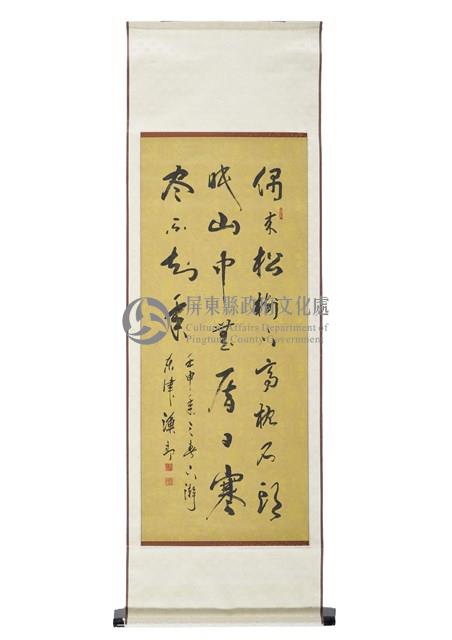 偶來松樹下高枕石頭
眠山中無曆日寒
盡不知年
壬申
東津漁郎
屏東縣政府文化處
Cultural Affairs Department of
Pingtung County Government